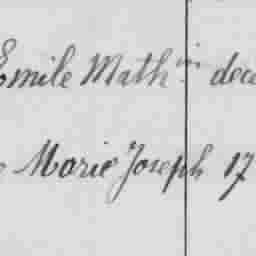 Emile Mathin dec
Marie Joseph 17